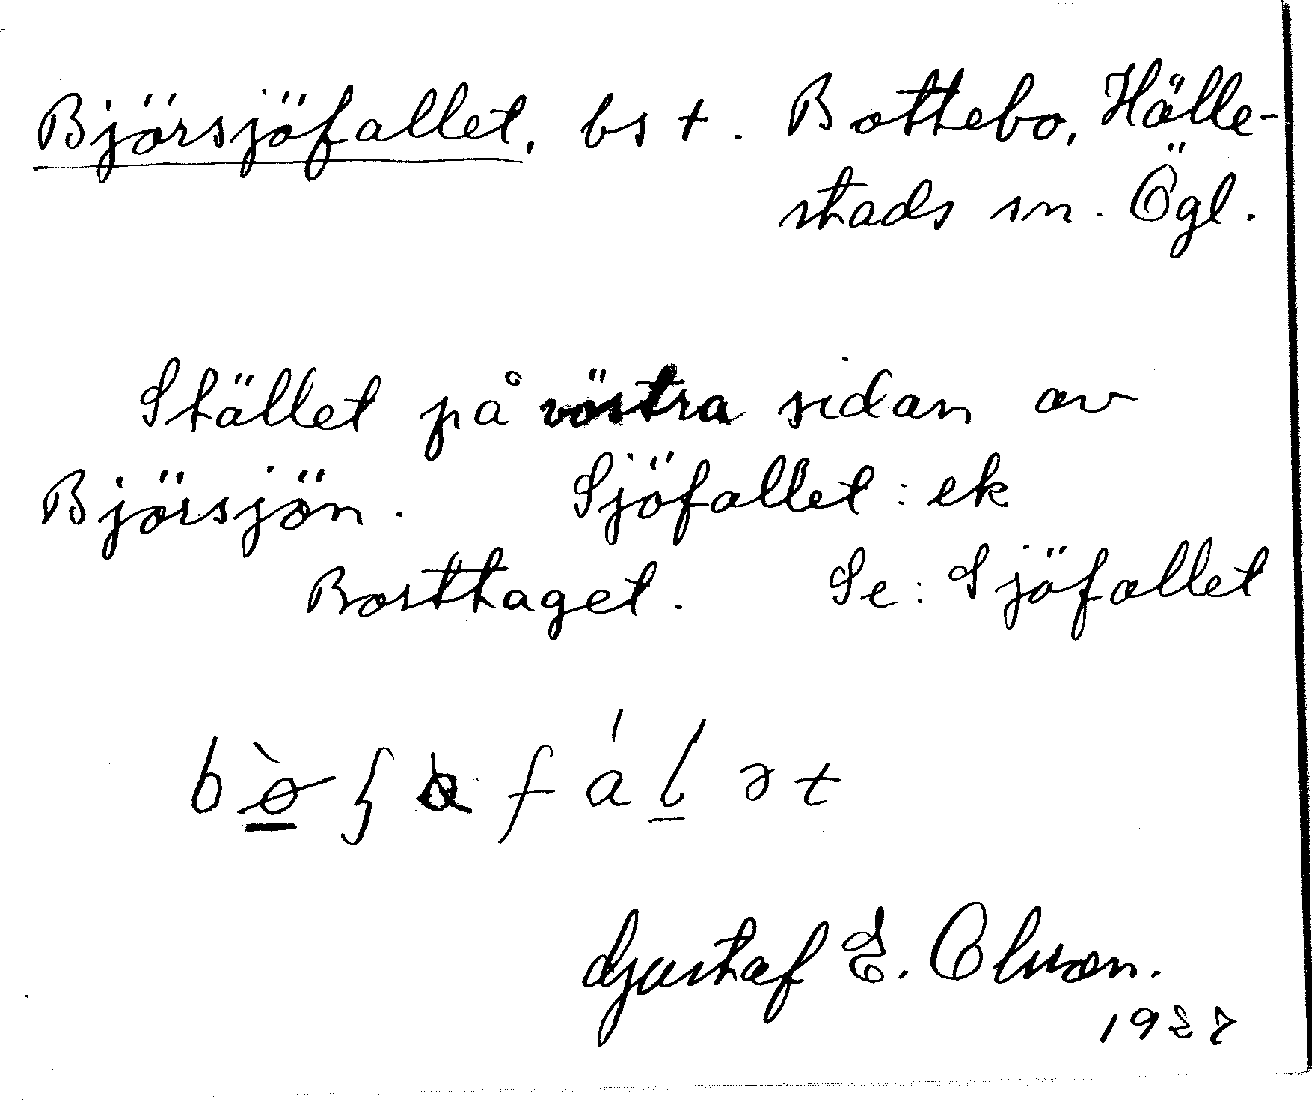 Björsjöfallet. bs t. Bottebo, Hälle-
stads sn. Ögl.
Stället på västra sidan av
Björsjön. Sjöfallet: ek
Borttaget. Se: Sjöfallet
Gustaf E. Olsson.
1927